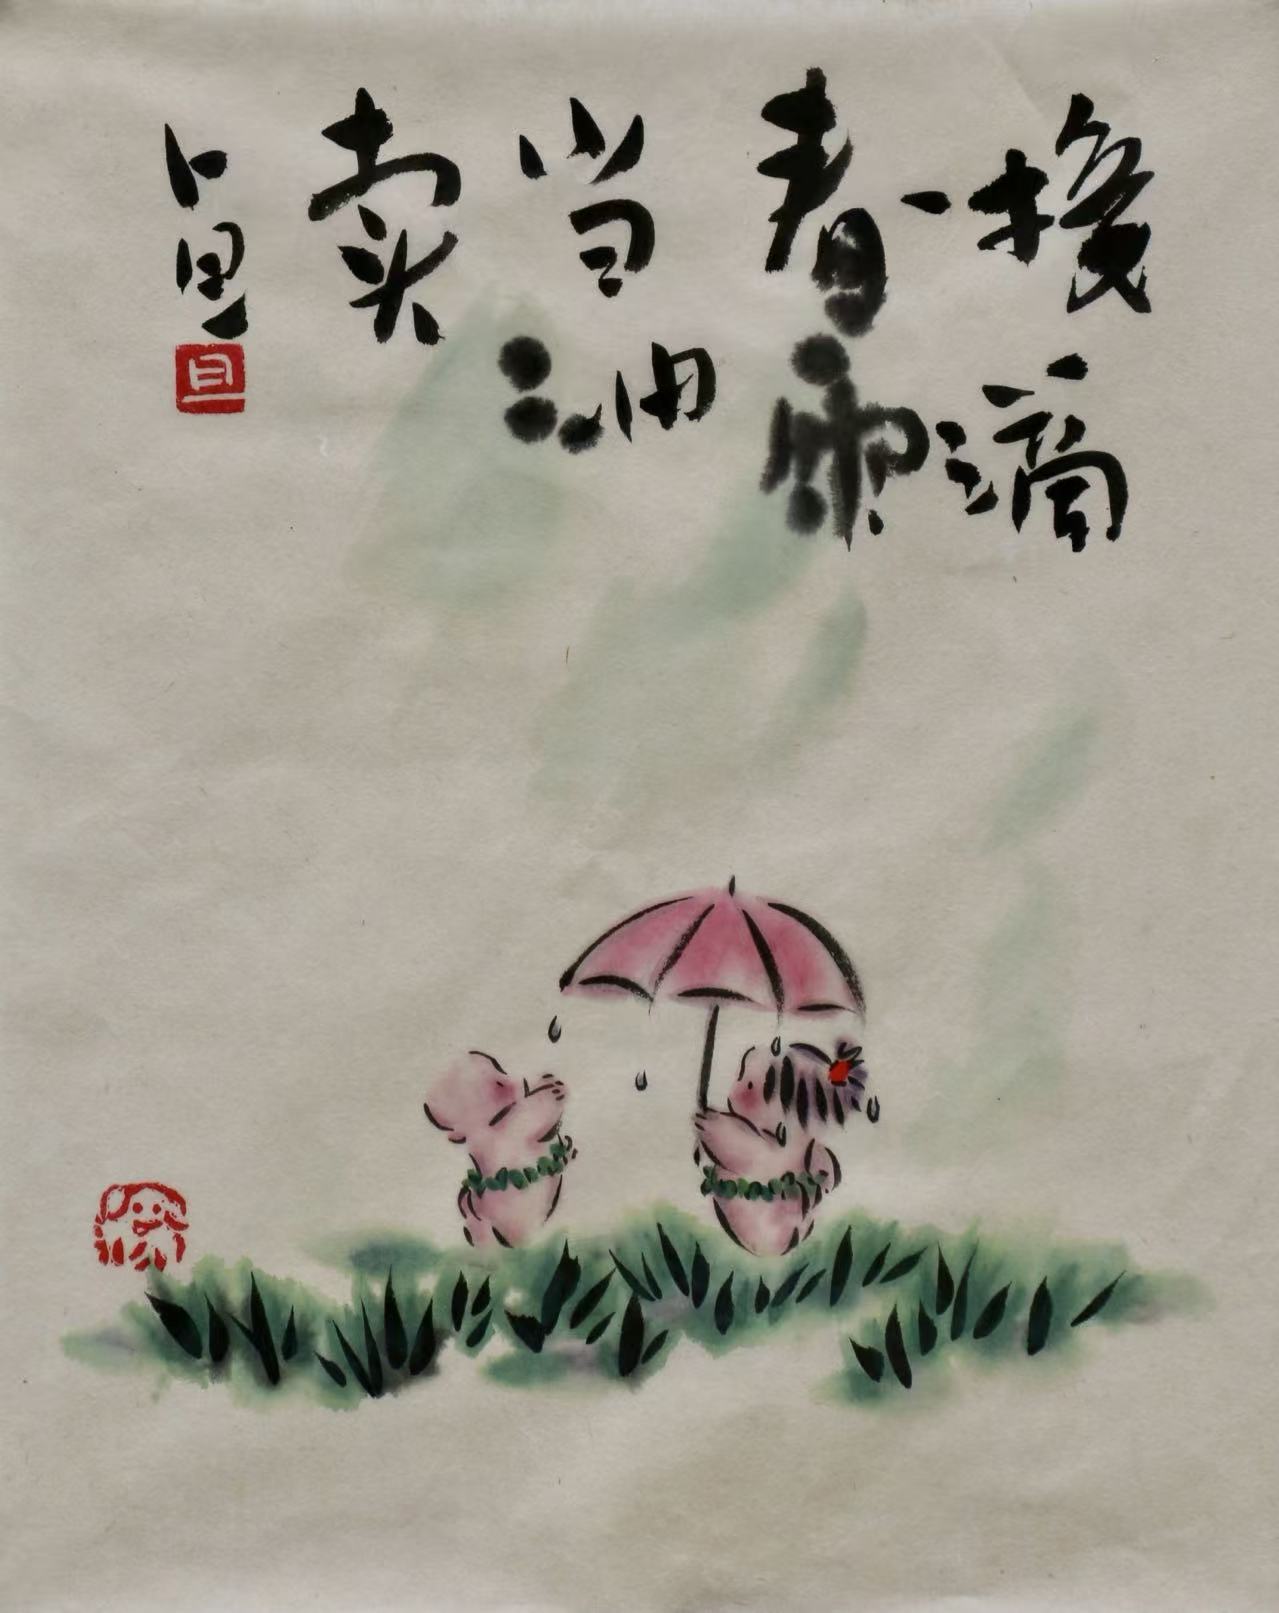 接一滴
春雨
当油
卖
卜旦
旦